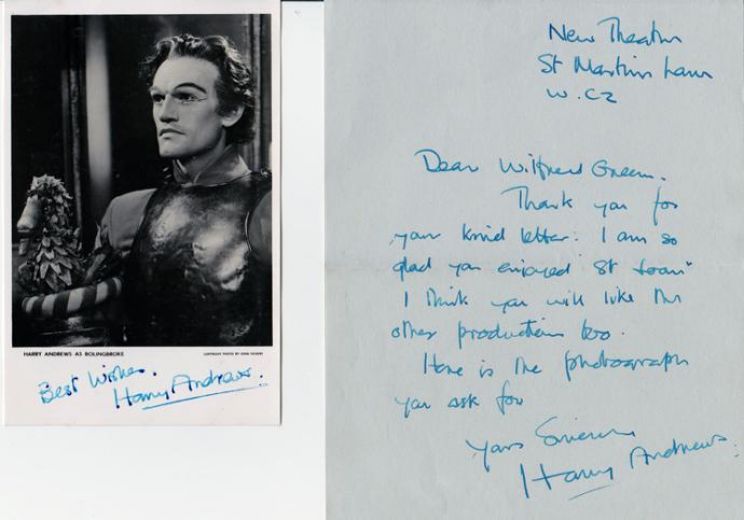 HARRY ANDREWS AS BOLINGBROKE
Best Wishes.
Harry Andrews.
New Theatre
St Martins Lane
W.C2
Dear Wilfred Green.
Thank you for
your kind letter. I am so
glad you enjoyed "St Joan"
I think you will like the
other productions too.
Here is the photograph
you ask for
Yours Sincerely
Harry Andrews.